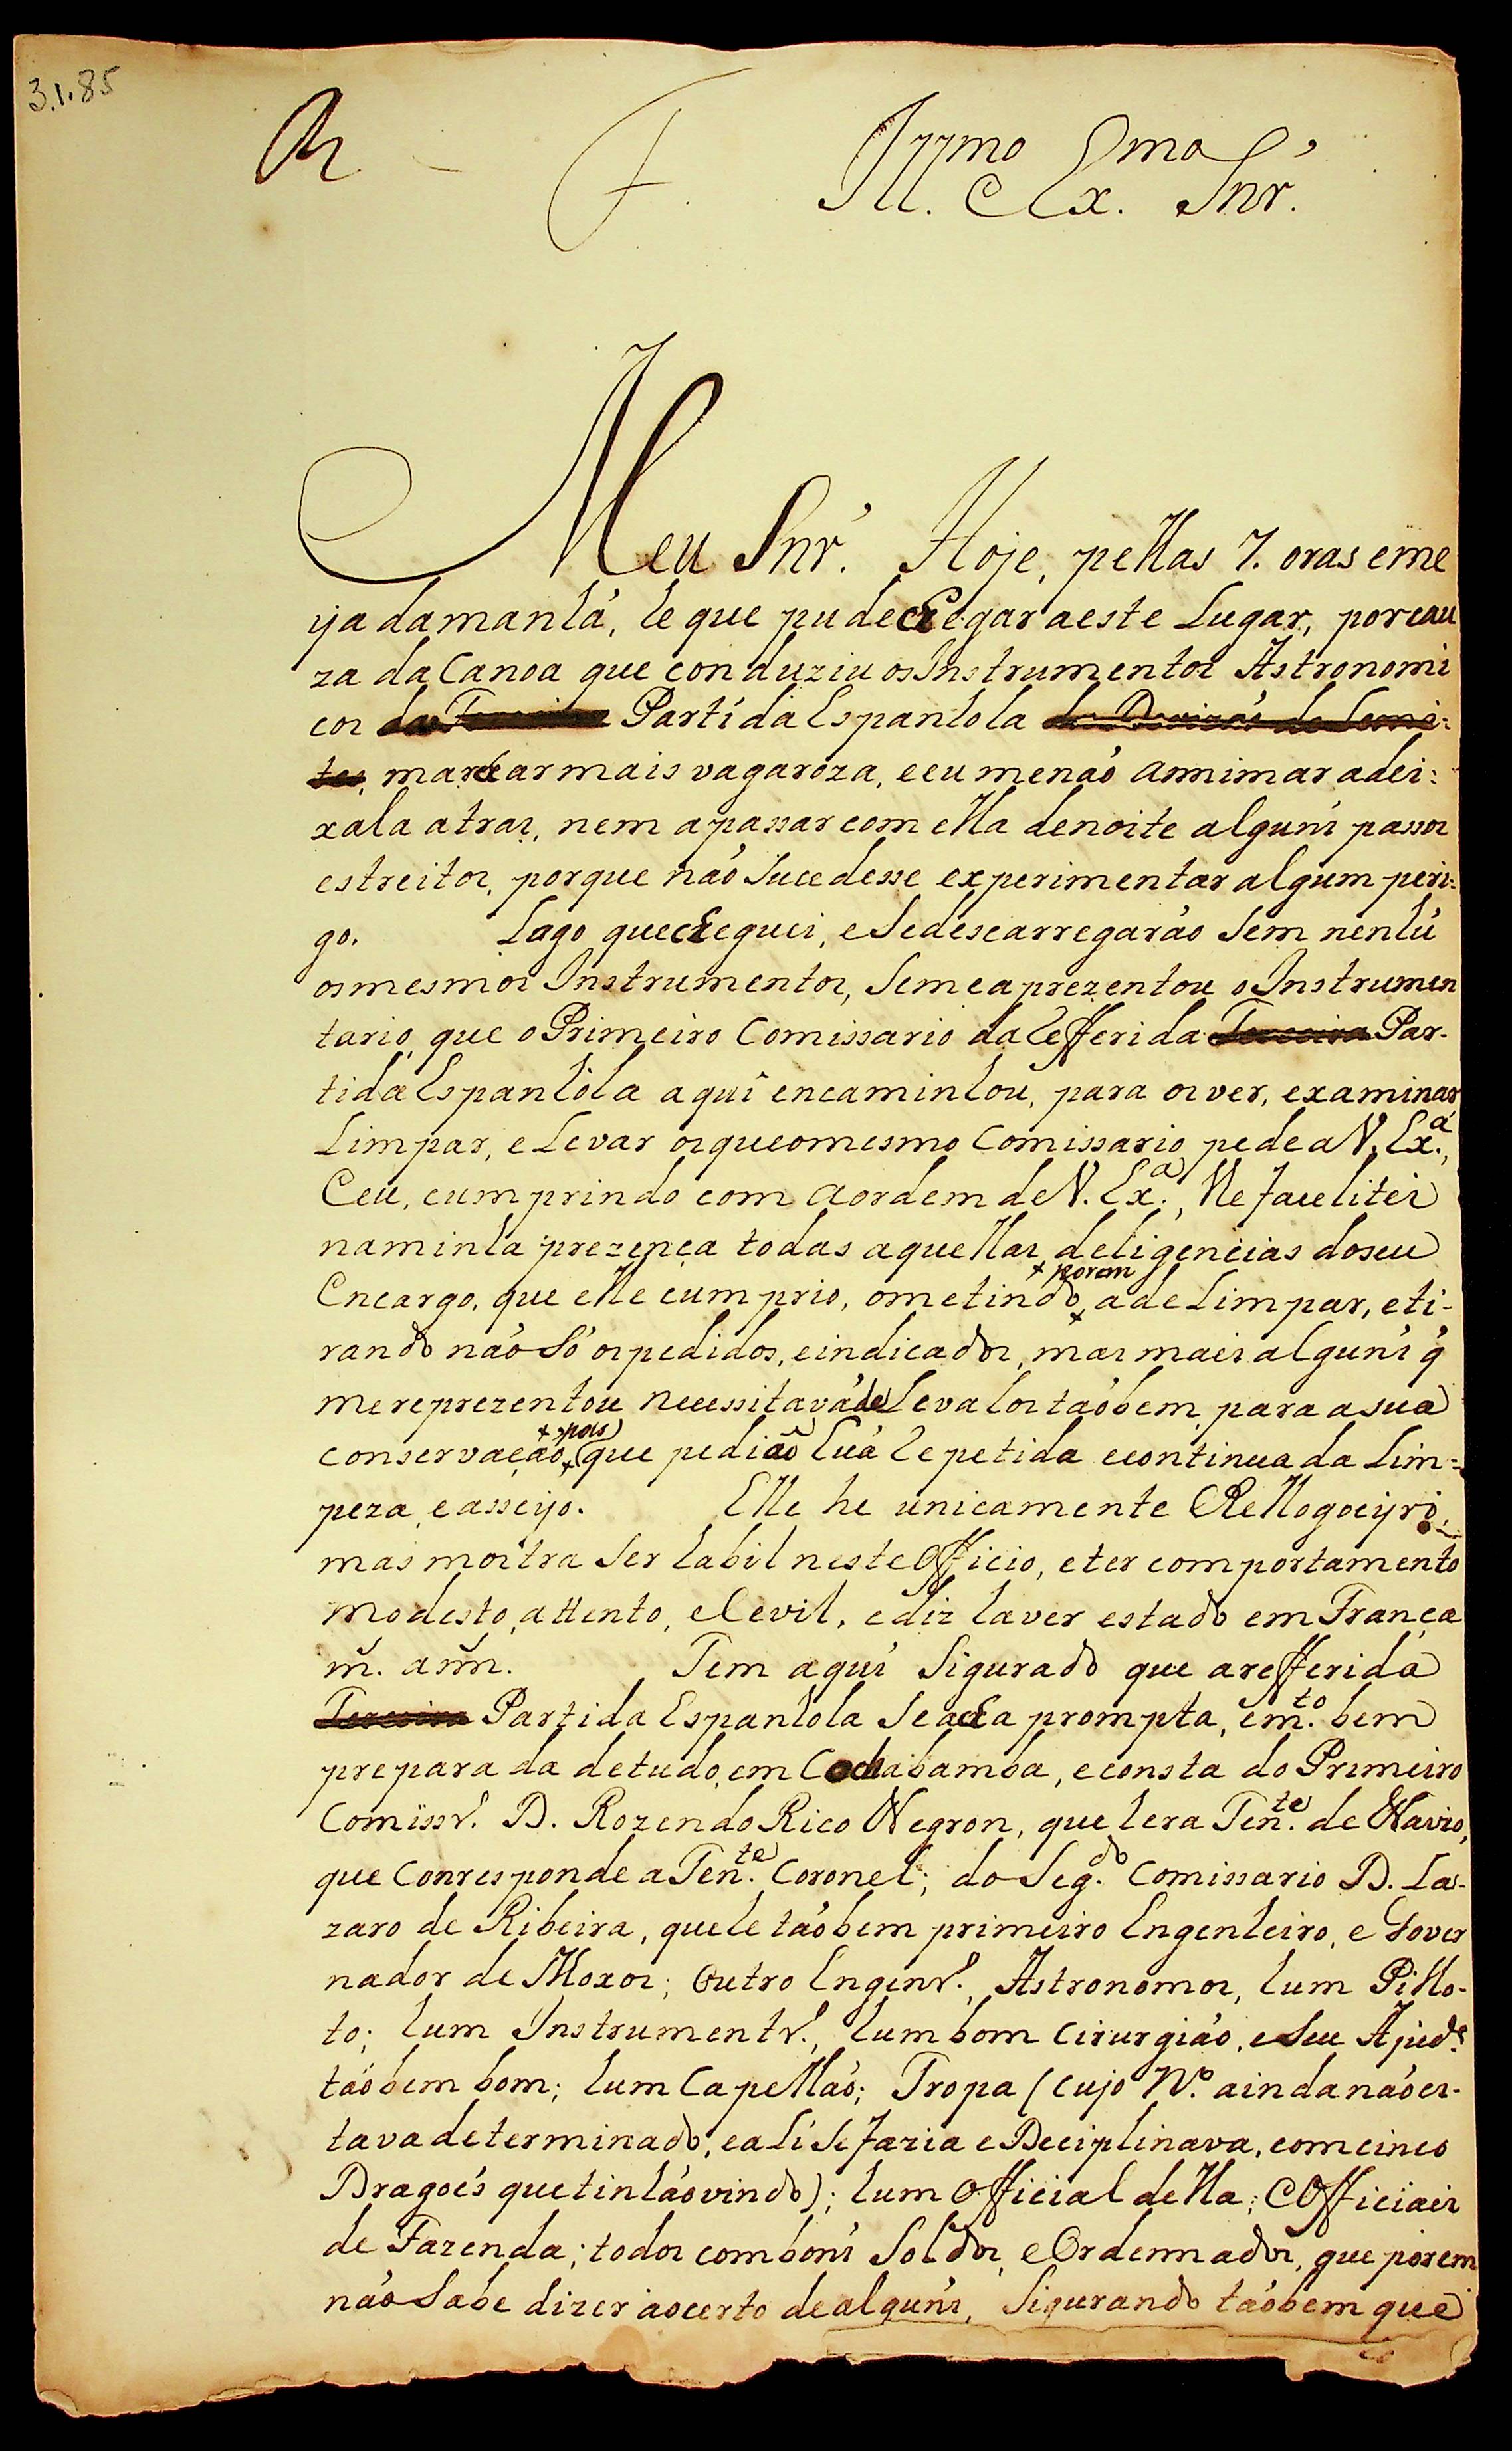 3.1.85
Ill.mo Ex.mo Snr.
Meu Snr. Hoje, pellas 7. oras e me
ya da manhã, he que pude chegar a este Lugar, por cau
za da Canoa que conduziu os Instrumentos Astronomi
cos da Terceira Partida Espanhola da Divizaõ de Lemi:
tes, marchar mais vagaroza, e eu me naõ annimar a dei:
xala atras, nem a passar com ella de noite alguns passos
estreitos, porque naõ sucedesse experimentar algum peri:
go. Lago que cheguei, e se descarregaraõ sem nenhũ
os mesmos Instrumentos, se me aprezentou o Instrumen
tario, que o Primeiro Comissario da Refferida Terceira Par-
tida Espanhola aqui encaminhou, para os ver, examinar
Limpar, e Levar os que o mesmo Comissario pede a V. Ex.ª,
E eu, cumprindo com a ordem de V. Ex.ª, lle faceliter
na minha prezença todas aquellas deligencias do seu
Encargo, que elle cumprio, ometindo, + porem a de Limpar, e ti-
rando naõ só os pedidos, e indicados, mas mais alguns q̃
me reprezentou necessitavaõ de levalos taõbem, para a sua
conservaçaõ, + pois (que pediaõ huã repetida e continuada Lim=
peza, e asseyo. Elle he unicamente Rellogoeyro,
mas mostra ser habil neste Officio, e ter comportamento
modesto, attento, e Cevil, e diz haver estado em França
m. ann. Tem aqui sigurado que a refferida
Terceira Partida Espanhola se acha prompta, e m.to bem
preparada de tudo, em Cochabamba, e consta do Primeiro
Comissr. D. Rozendo Rico Negron, que hera Ten.te de Navio,
que Conresponde a Ten.te Coronel; do Seg.do Comissario D. La-
zaro de Ribeira, que he taõbem primeiro Engenheiro, e Gover
nador de Moxos; Outro Engenr., Astronomos, hum Pillo-
to; hum Instrumentr., hum bom Cirurgiaõ, e seu Ajud.e
taõbem bom; hum Capellaõ; Tropa (cujo N.º ainda naõ es-
tava determinado, e ali se fazia e Deciplinava, com cinco
Dragoēs que tinhaõ vindo); hum Official della; e Officiais
de Fazenda; todos com bons Soldos, e Ordennados, que porem
naõ sabe dizer ao certo de alguns, Sigurando taõbem que